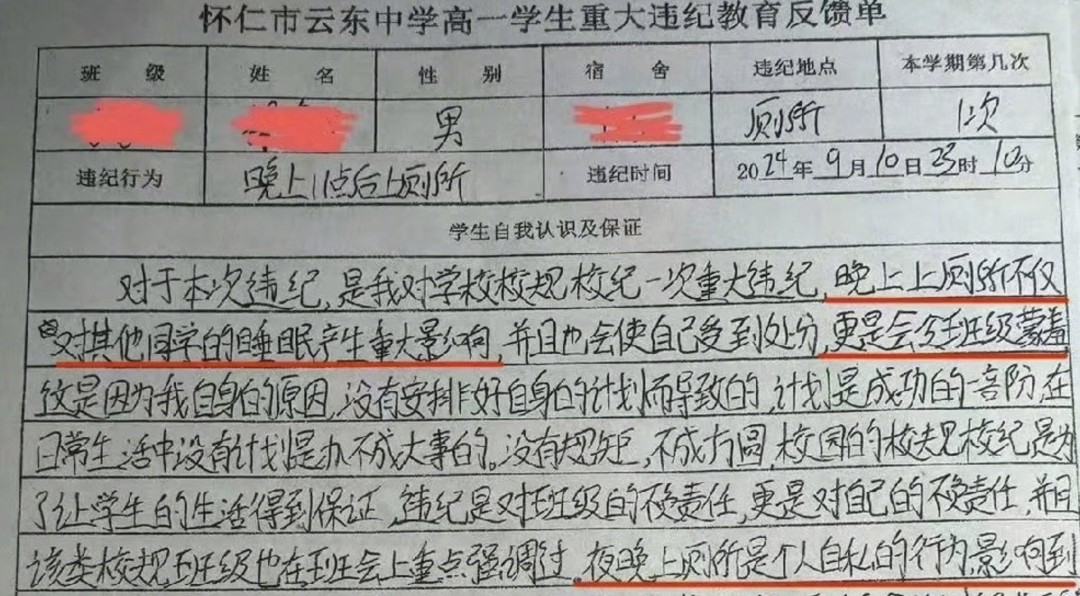 怀仁市云东中学高一学生重大违纪教育反馈单
班 级 姓 名 性 别 宿 舍 违纪地点 本学期第几次
男 厕所 1次
违纪行为 晚上11点后上厕所 违纪时间 2024年9月10日23时10分
学生自我认识及保证
对于本次违纪,是我对学校校规校纪一次重大违纪,晚上上厕所不仅
对其他同学的睡眠产生重大影响,并且也会使自己受到处分,更是会令班级蒙羞
这是因为我自身的原因,没有安排好自身的计划而导致的,计划是成功的一部,在
日常生活中没有计划是办不成大事的。没有规矩,不成方圆,校园的校规校纪是为
了让学生的生活得到保证,违纪是对班级的不负责任,更是对自己的不负责任,并且
该类校规班级也在班会上重点强调过.夜晚上厕所是个人自私的行为,影响到